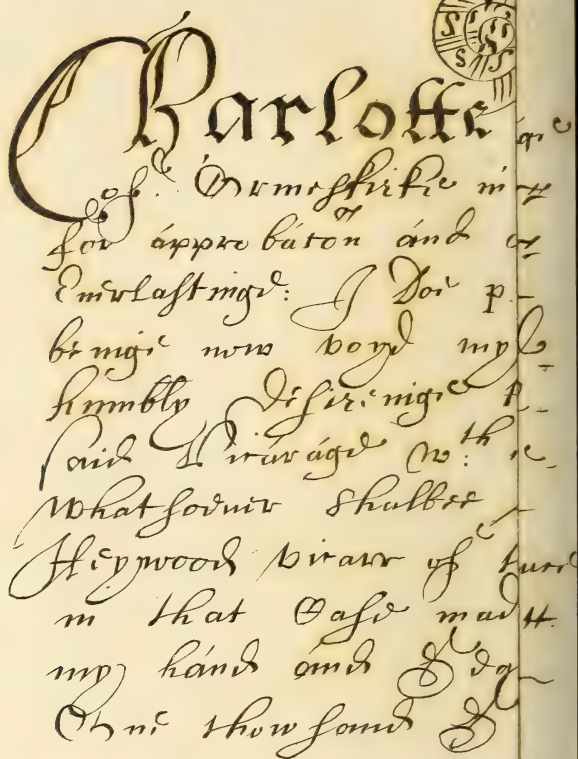 Charlotte
of Ormeskirke in
for approbaton and
Everlastinge: I Doe p
beinge now voyd my
humbly desireinge
said Vicarage wth
whatsoever shalbee
Heywood vicarr of
in that Case mad
my hand and
One thowsand